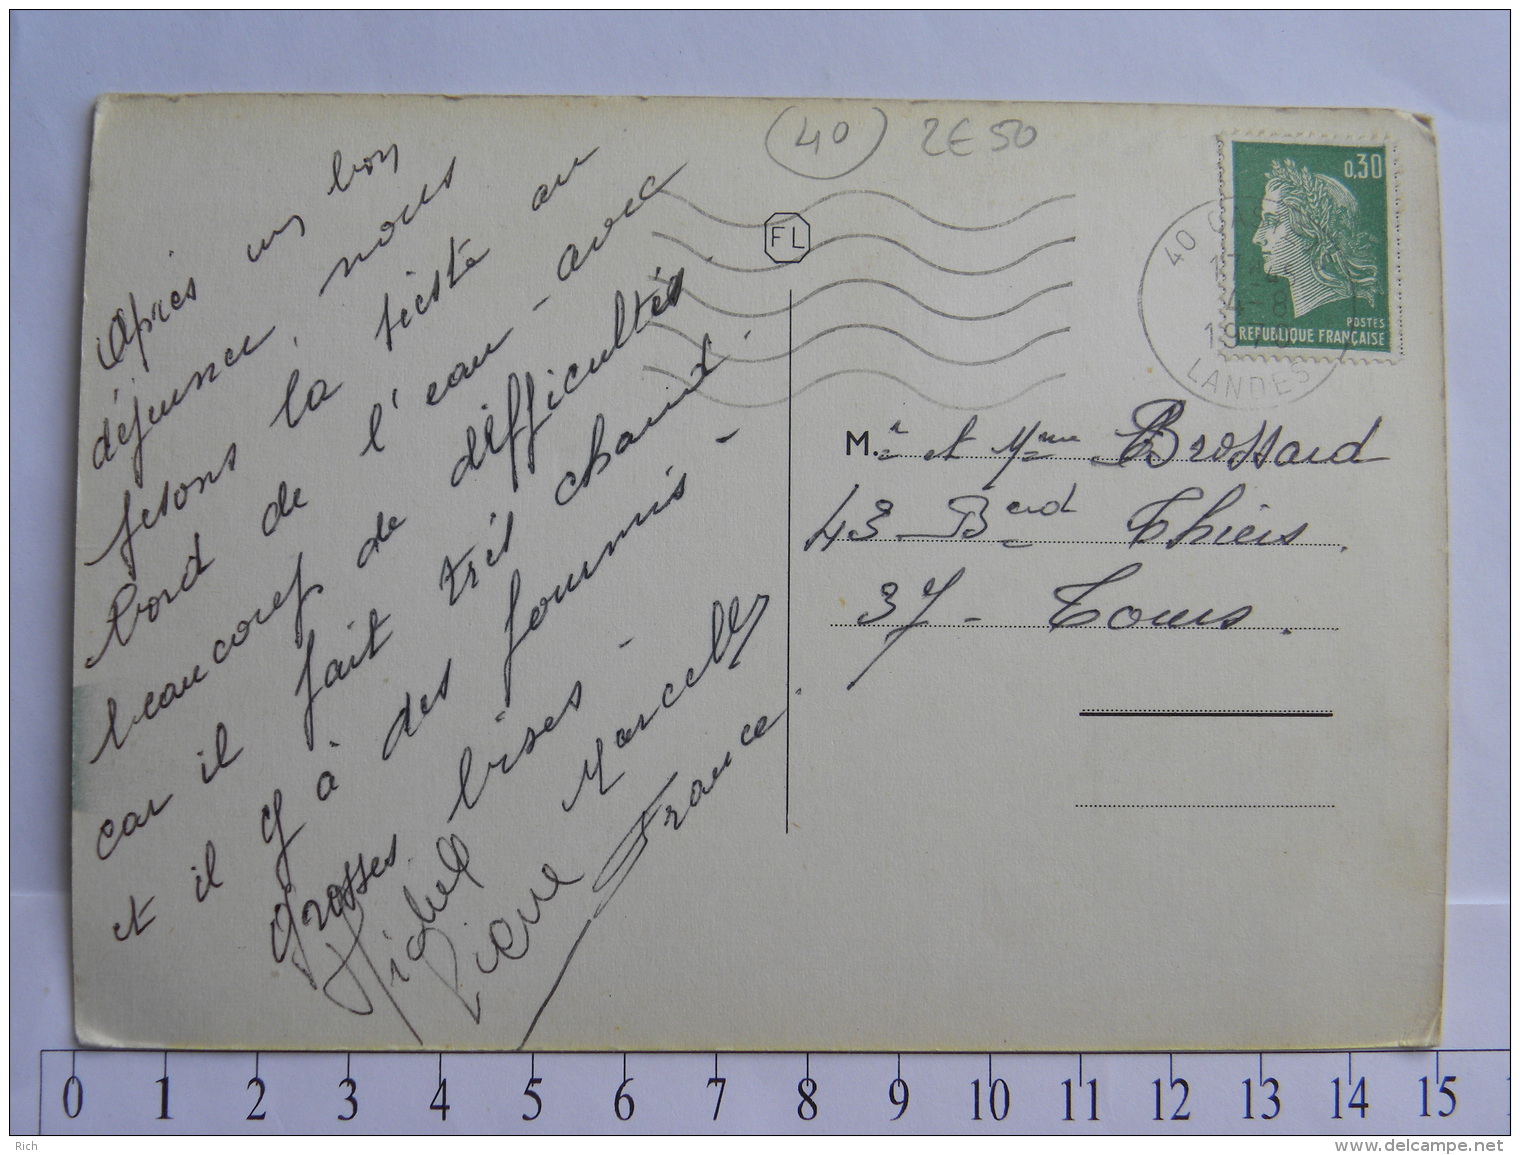 Après un bon
déjeuner, nous
fesons la sieste au
bord de l'eau - avec
beaucoup de difficultés.
car il fait très chaud.
et il y à des fourmis -
grosses bises -
Michel Marcelle
Pierre France
(40) 2E50
FL
0,30
POSTES
REPUBLIQUE FRANÇAISE
40
LANDES
M.r et Mme Brossard
43 Berd Thiers.
37 - Tours.
0 1 2 3 4 5 6 7 8 9 10 11 12 13 14 15
Rich
www.delcampe.net